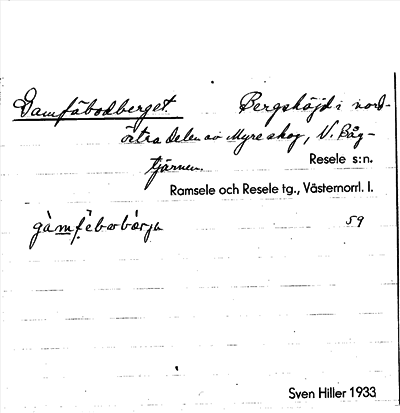 Gamfäbodberget. Bergshöjd i nord-
östra delen av Myre skog, V. Båg-
tjärnen.
Resele s:n.
Ramsele och Resele tg., Västernorrl. l.
59
Sven Hiller 1933